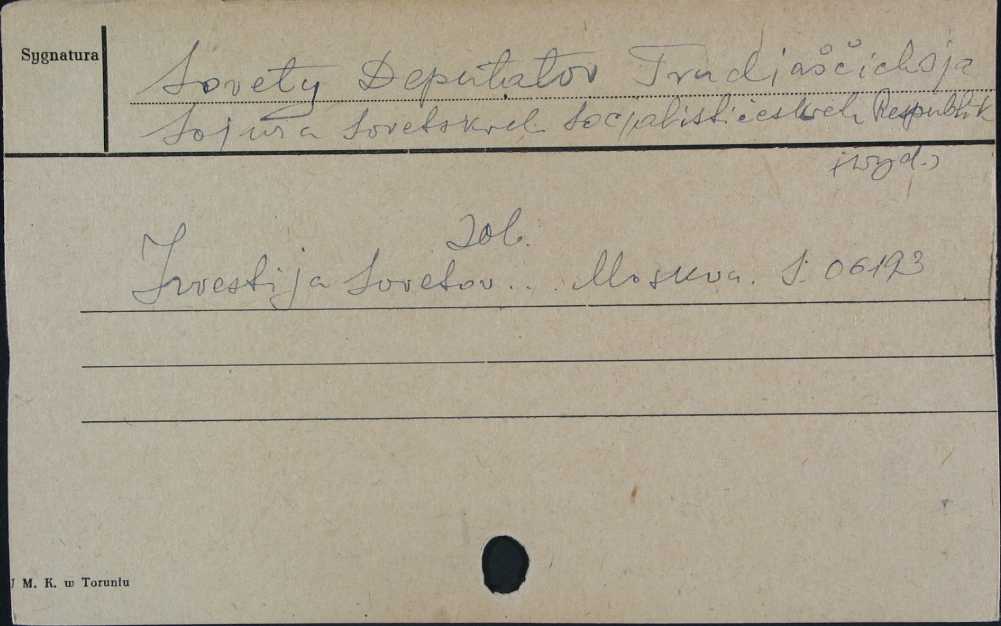 Sygnatura
Sovety Deputatov Trudjaščichsja
Sojuza Sovetskich Socjalističeskich Respublik
(wyd.)
zob.
Izvestija Sovetov... Moskva. S. 06193
U M. K. w Toruniu